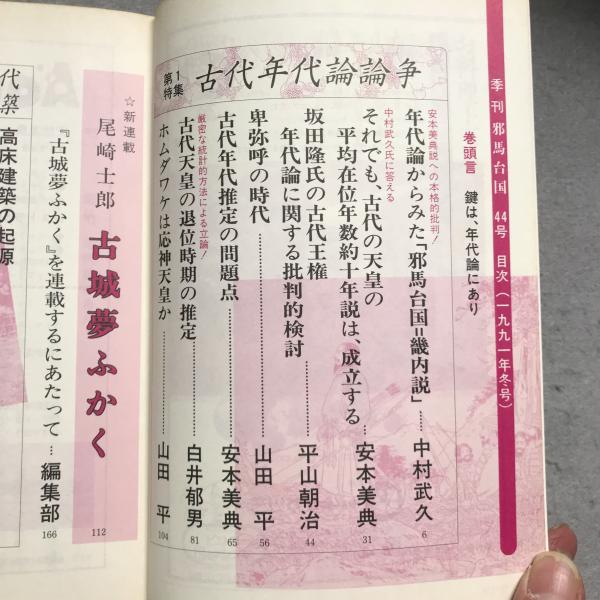 季刊 邪馬台国 44号 目次（一九九一年冬号）
巻頭言 鍵は、年代論にあり
第1特集 古代年代論論争
安本美典説への本格的批判！
年代論からみた「邪馬台国=畿内説」……中村武久 6
中村武久氏に答える
それでも、古代の天皇の
平均在位年数約十年説は、成立する……安本美典 31
坂田隆氏の古代王権
年代論に関する批判的検討……平山朝治 44
卑弥呼の時代……山田 平 56
古代年代推定の問題点……安本美典 65
厳密な統計的方法による立論！
古代天皇の退位時期の推定……白井郁男 81
ホムダワケは応神天皇か……山田 平 104
☆新連載
尾崎士郎 古城夢ふかく 112
『古城夢ふかく』を連載するにあたって…編集部 166
高床建築の起源